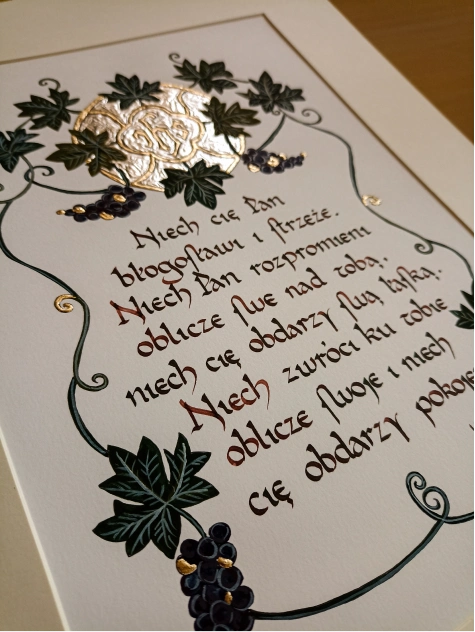 Niech cię Pan
błogosławi i strzeże.
Niech Pan rozpromieni
oblicze swe nad tobą,
niech cię obdarzy swą łaską.
Niech zwróci ku tobie
oblicze swoje i niech
cię obdarzy pokojem